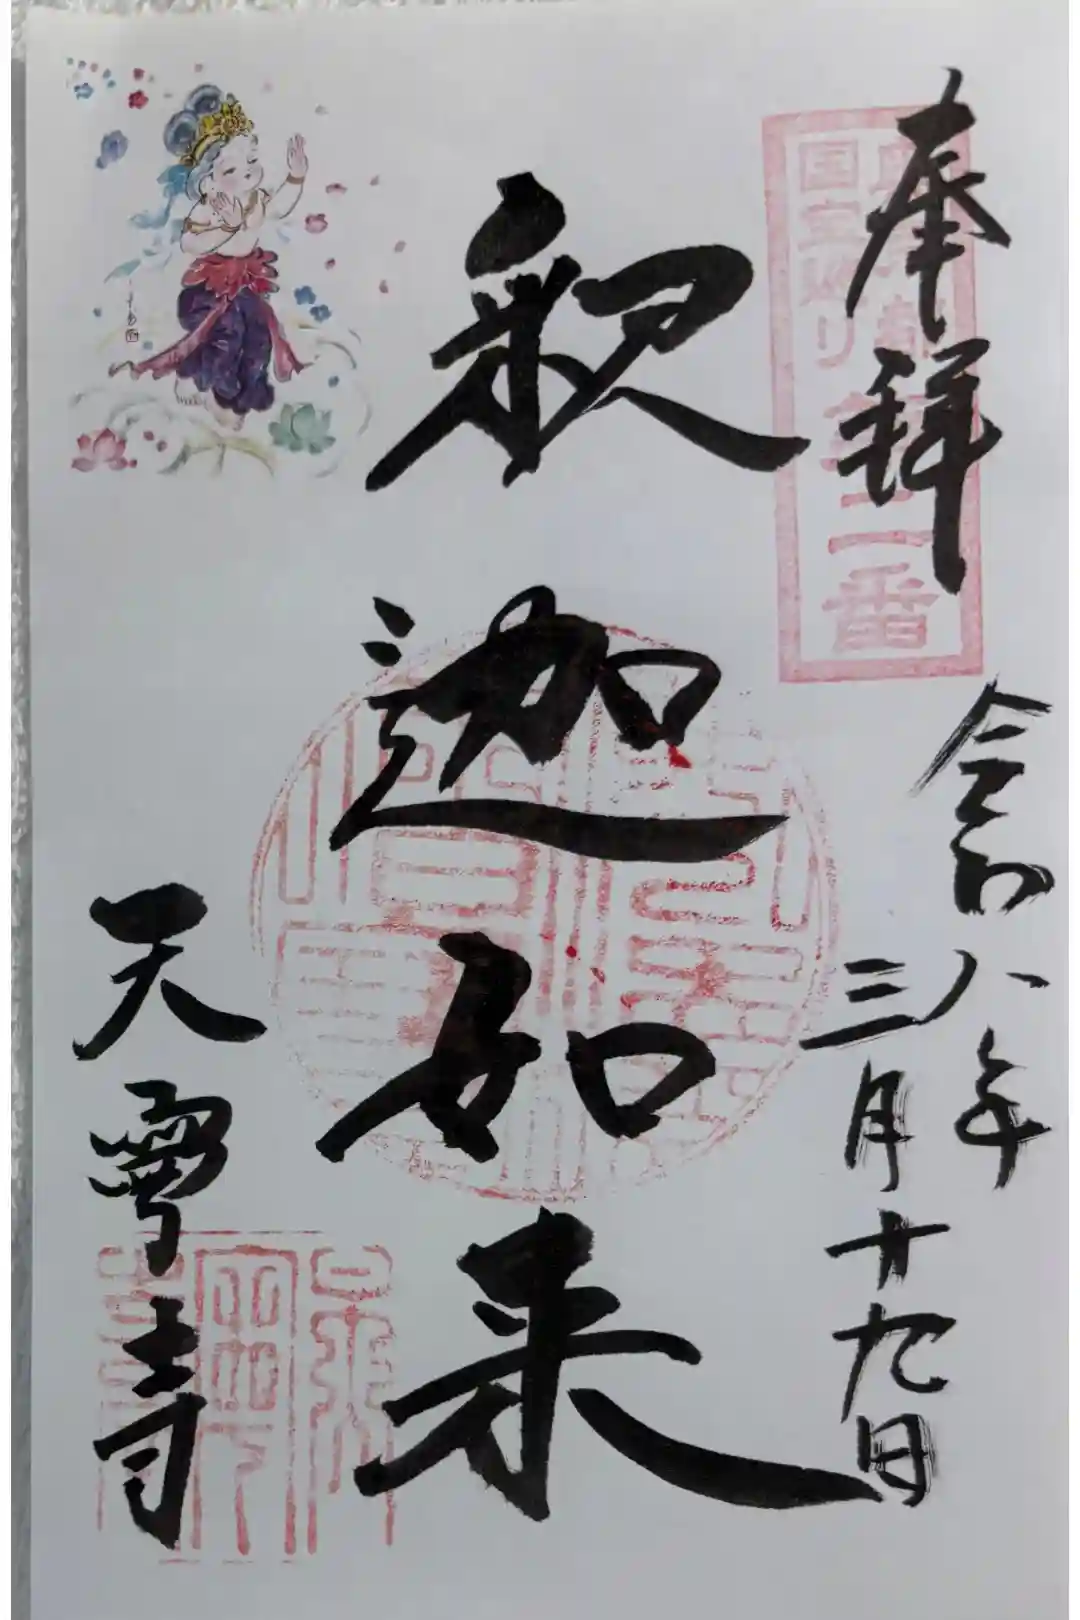 奉拝
令和八年
三月十九日
釈迦如来
天寧寺
国宝巡り
二番